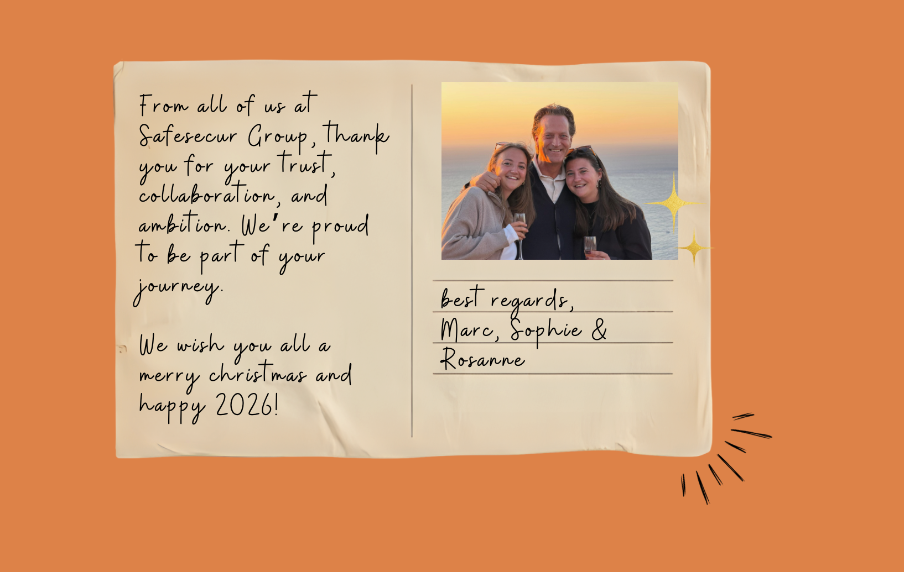 From all of us at
Safesecur Group, thank
you for your trust,
collaboration, and
ambition. We're proud
to be part of your
journey.
We wish you all a
merry christmas and
happy 2026!
best regards,
Marc, Sophie &
Rosanne